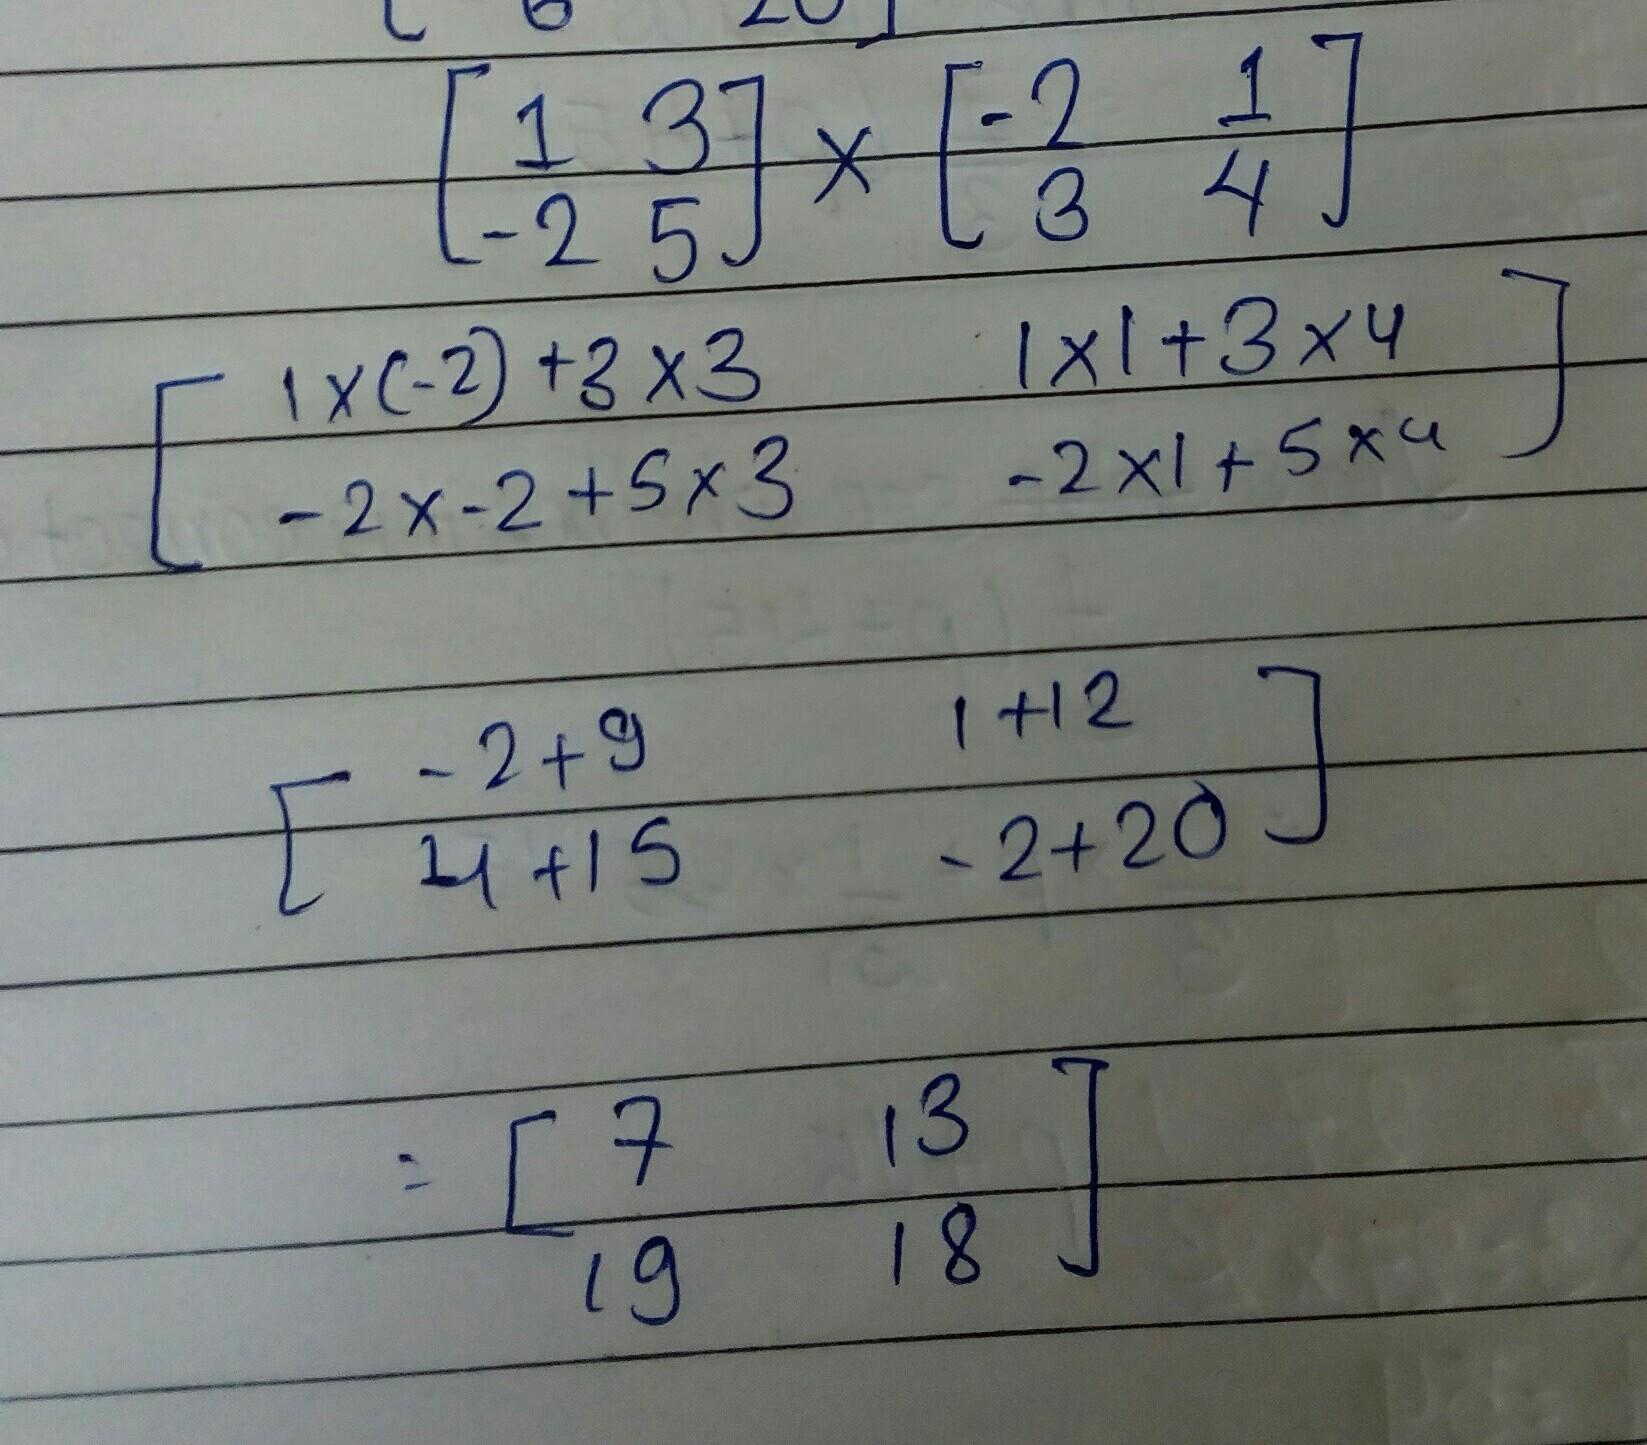 [ 1 3 ] × [ -2 1 ]
[ -2 5 ] [ 3 4 ]
[ 1×(-2)+3×3 1×1+3×4 ]
[ -2×-2+5×3 -2×1+5×4 ]
[ -2+9 1+12 ]
[ 4+15 -2+20 ]
= [ 7 13 ]
[ 19 18 ]